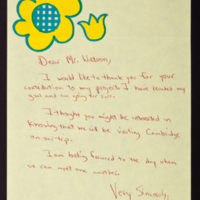 Dear Mr. Watson,
I would like to thank you for your
contribution to my project. I have reached my
goal and am going for sure.
I thought you might be interested in
knowing that we will be visiting Cambridge
on our trip.
I am looking forward to the day when
we can meet one another.
Very Sincerely,